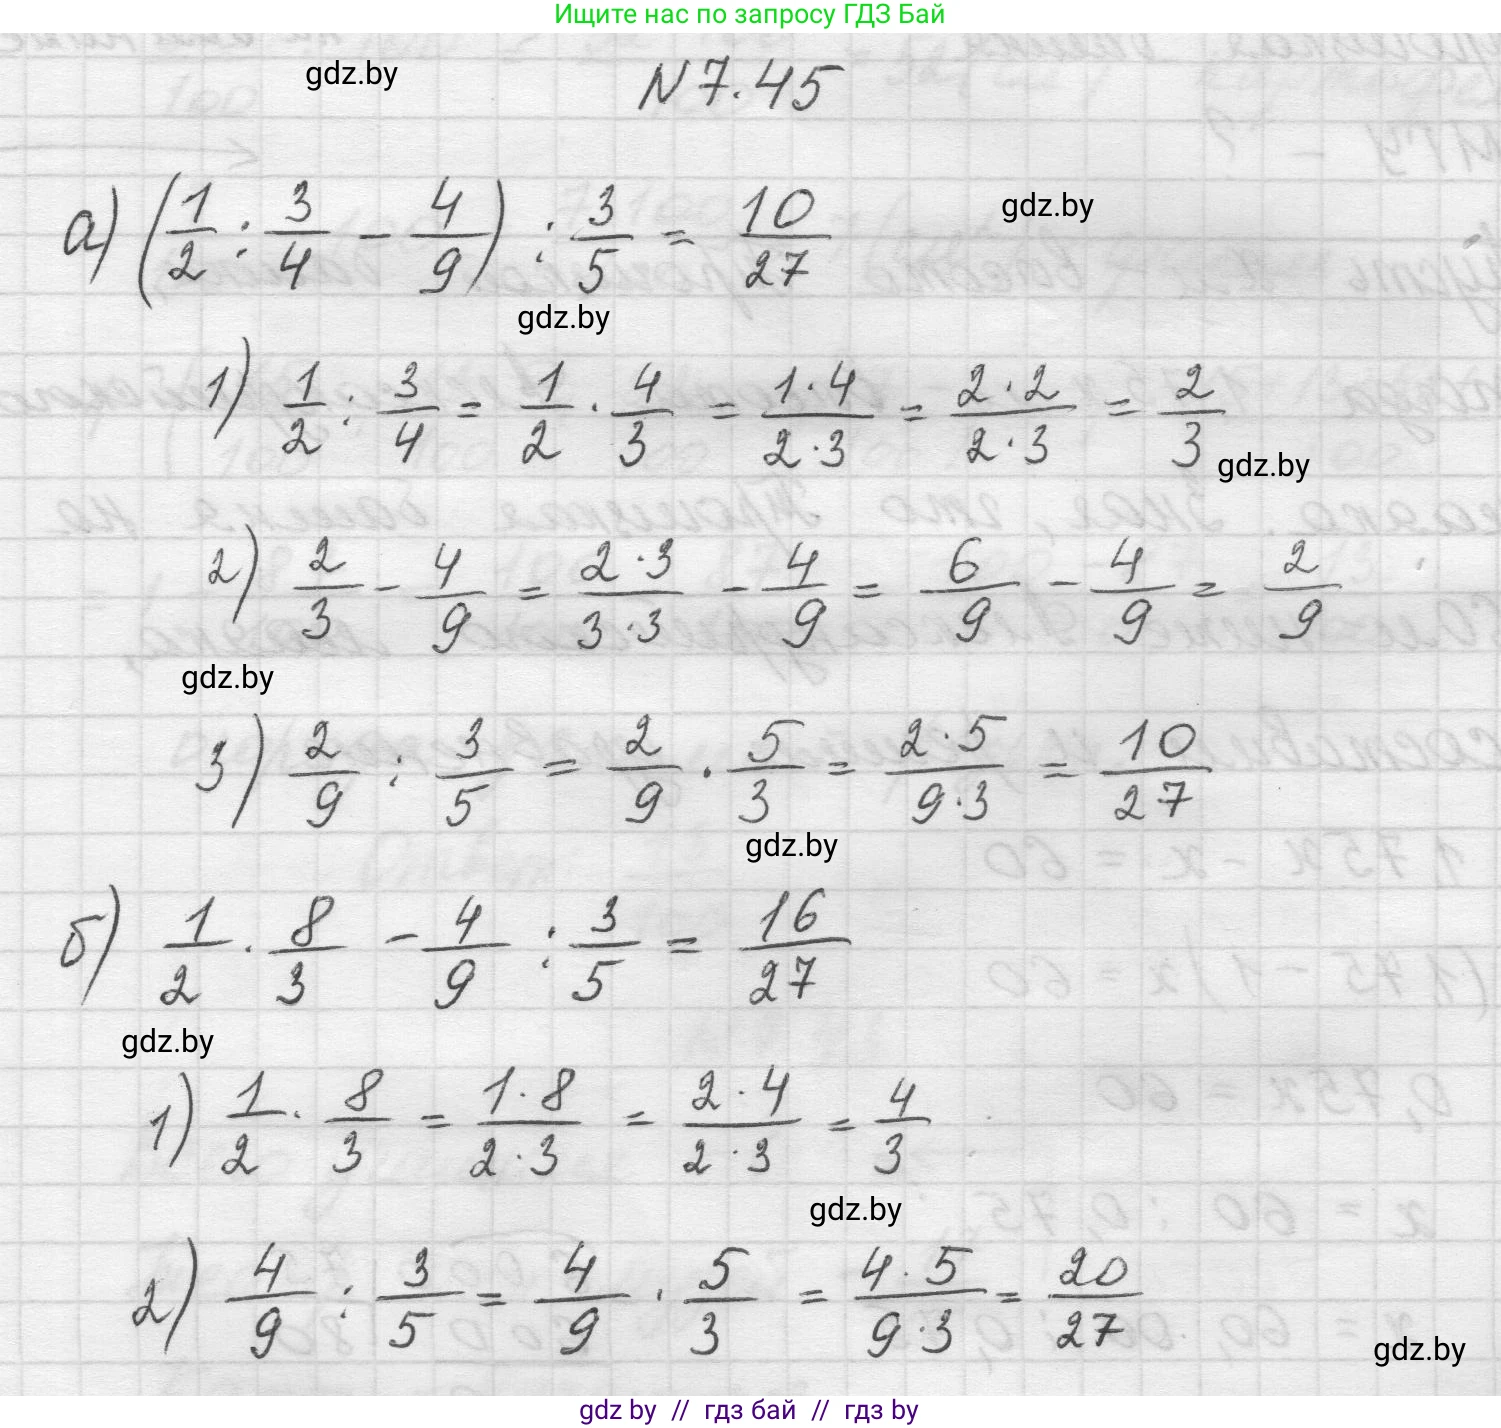 Ищите нас по запросу ГДЗ Бай
gdz.by
N7.45
gdz.by
а) (1/2 : 3/4 - 4/9) : 3/5 = 10/27
gdz.by
1) 1/2 : 3/4 = 1/2 · 4/3 = 1·4/2·3 = 2·2/2·3 = 2/3
gdz.by
2) 2/3 - 4/9 = 2·3/3·3 - 4/9 = 6/9 - 4/9 = 2/9
gdz.by
3) 2/9 : 3/5 = 2/9 · 5/3 = 2·5/9·3 = 10/27
gdz.by
б) 1/2 · 8/3 - 4/9 : 3/5 = 16/27
gdz.by
1) 1/2 · 8/3 = 1·8/2·3 = 2·4/2·3 = 4/3
gdz.by
2) 4/9 : 3/5 = 4/9 · 5/3 = 4·5/9·3 = 20/27
gdz.by
gdz by // гдз бай // гдз by